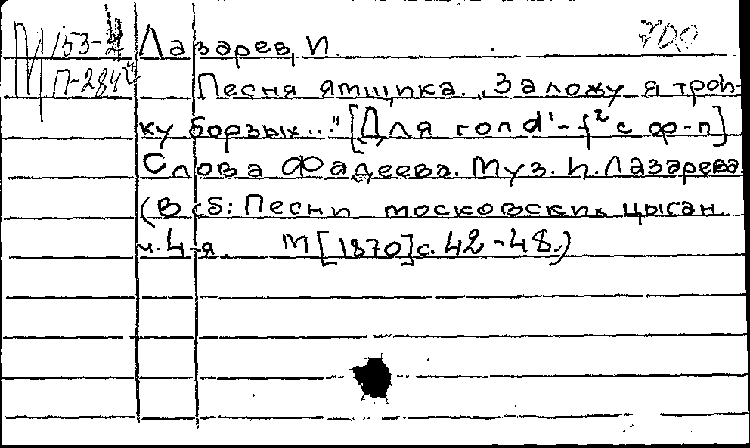 М 153-4 Лазарев, П. 700
П-284
Песня ямщика. „Заложу я трой-
ку борзых..." [Для гол d¹-f² с ф-п]
Слова Фадеева. Муз. П. Лазарева.
(В сб: Песни московских цыган.
ч. 4-я. М [1870] с. 42-48.)